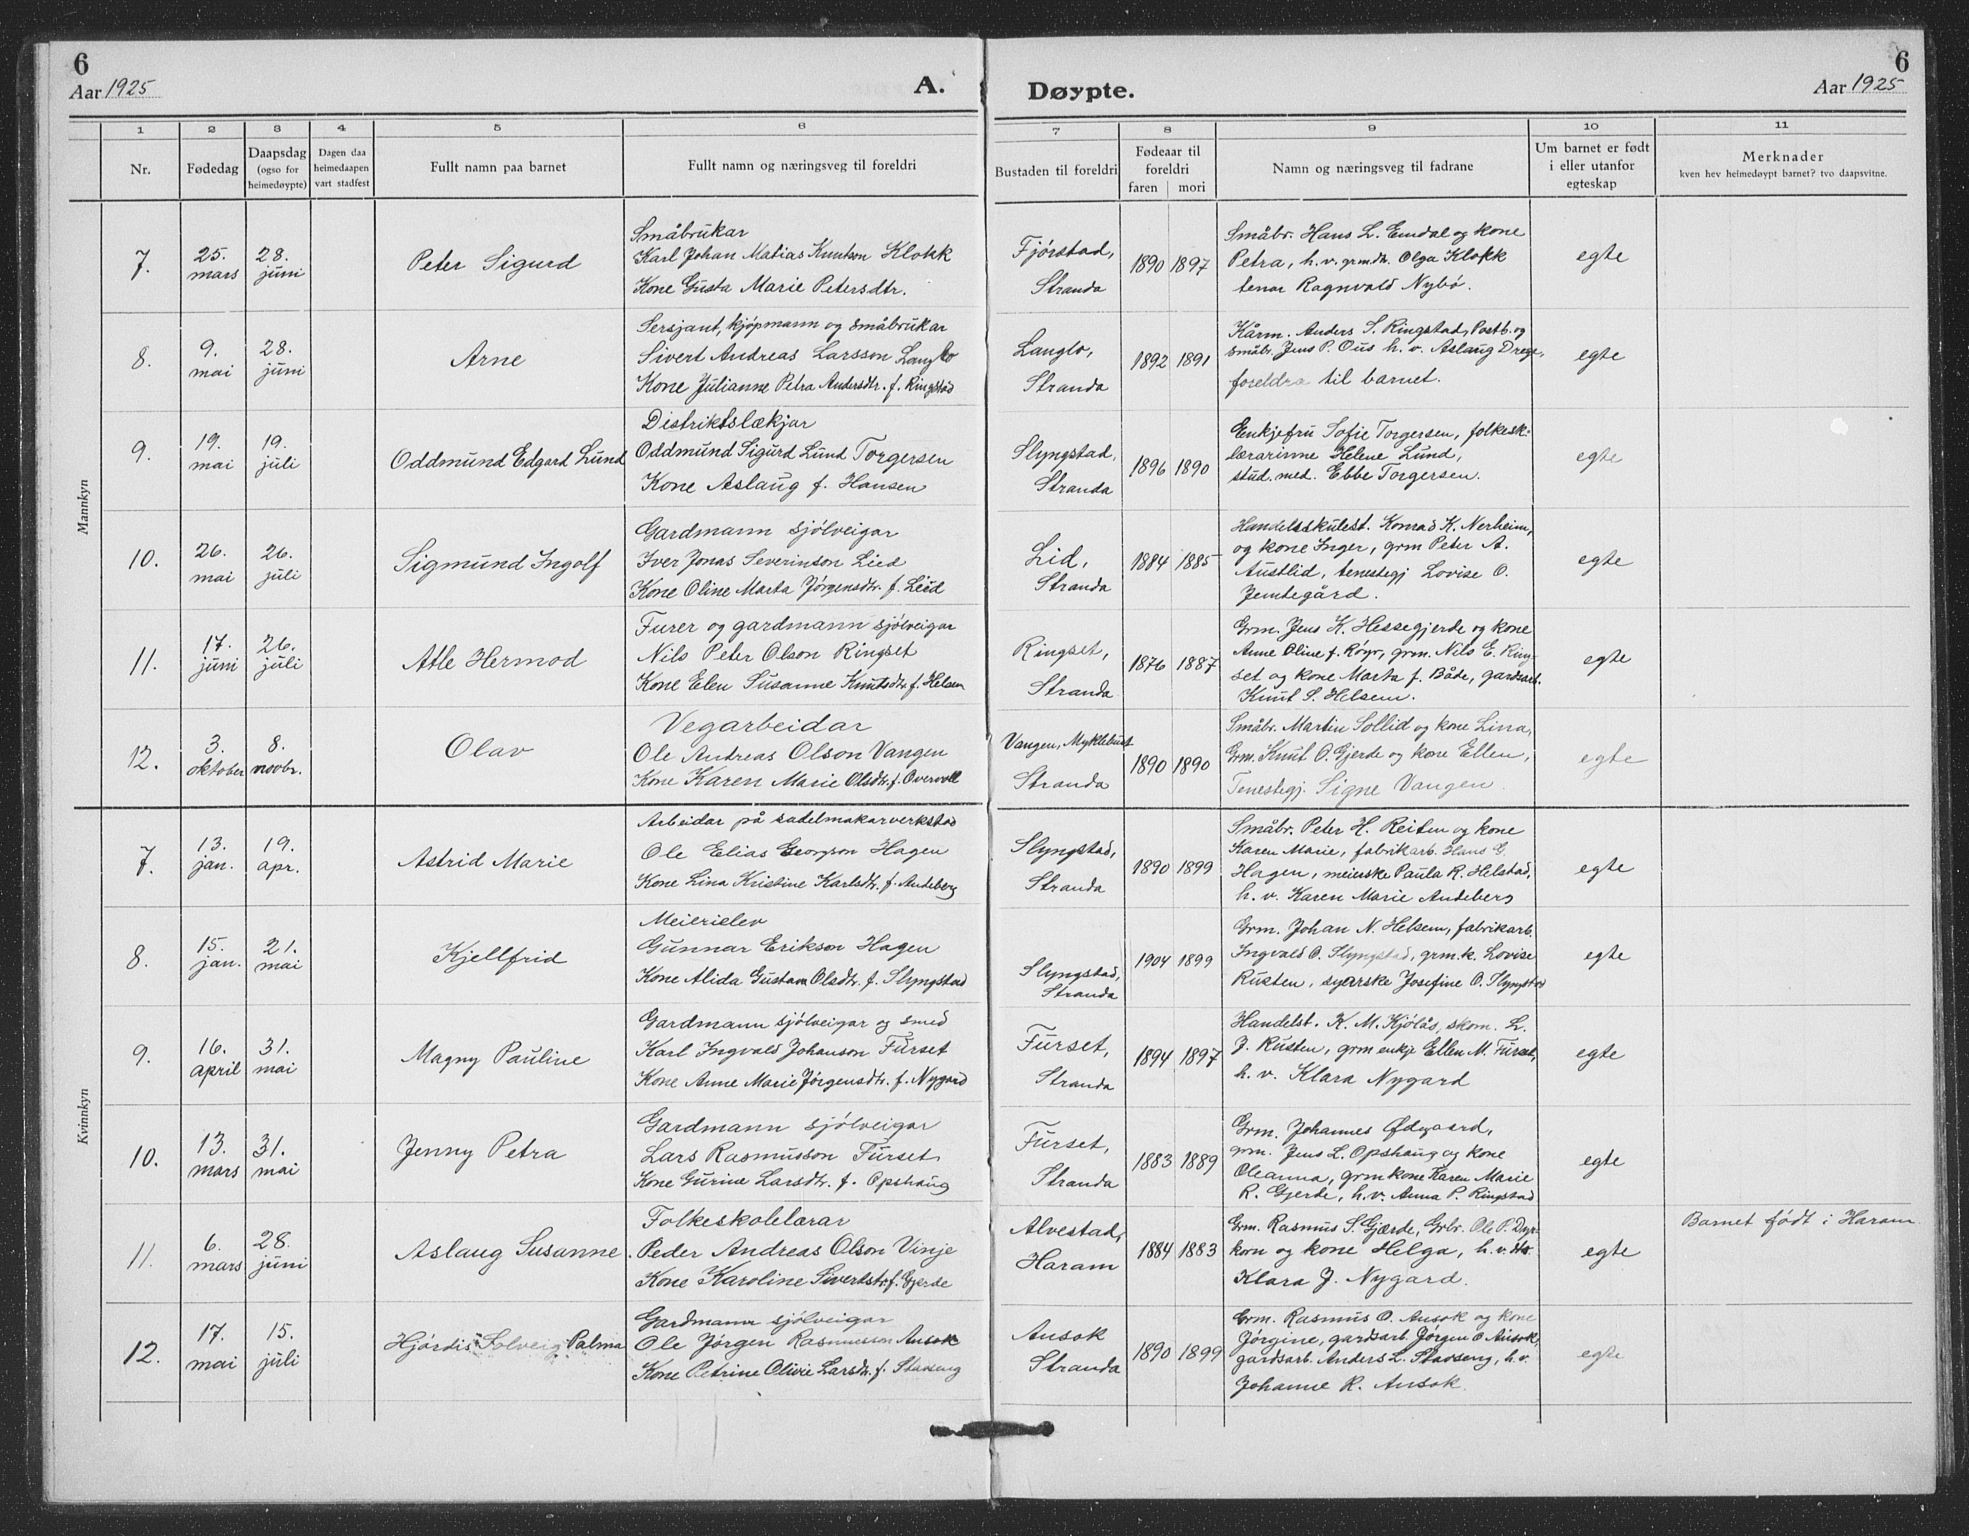 6
Aar 1925
A.
Døypte.
6
Aar 1925
1 2 3 4 5 6 7 8 9 10 11
Nr.
Fødedag
Daapsdag
(ogso for
heimedøypte)
Dagen daa
heimedaapen
vart stadfest
Fullt namn paa barnet
Fullt namn og næringsveg til foreldri
Bustaden til foreldri
Fødeaar til
foreldri
faren mori
Namn og næringsveg til fadrane
Um barnet er født
i eller utanfor
egteskap
Merknader
kven hev heimedøypt barnet? tvo daapsvitne.
Mannkyn
7.
25.
mars
28.
juni
Peter Sigurd
Småbrukar
Karl Johan Matias Knutson Klokk
Kone Gusta Marie Petersdtr.
Fjørstad,
Stranda
1890 1897
Småbr. Hans L. Emdal og kone
Petra, h. v. grmdtr. Olga Klokk
tenar Ragnvald Nybø.
egte
8.
9.
mai
28.
juni
Arne
Sersjant, kjøpmann og småbrukar
Sivert Andreas Larsson Langlo
Kone Julianne Petra Andersdtr. f. Ringstad
Langlo,
Stranda
1892 1891
Kårm. Anders S. Ringstad, Postb. og
småbr. Jens P. Ous h. v. Aslaug Drege,
foreldra til barnet.
egte
9.
19.
mai
19.
juli
Oddmund Edgard Lund
Distriktslækjar
Oddmund Sigurd Lund Torgersen
Kone Aslaug f. Hansen
Slyngstad,
Stranda
1896 1890
Enkjefru Sofie Torgersen, folkesk.
lærarinne Helene Lund,
stud. med. Ebbe Torgersen.
egte
10.
26.
mai
26.
juli
Sigmund Ingolf
Gardmann sjølveigar
Iver Jonas Severinson Lied
Kone Oline Marta Jørgensdtr. f. Lied
Lid,
Stranda
1884 1885
Handelsskulest. Konrad K. Nerheim,
og kone Inger, grm Peter A.
Austlid, tenestegj Lovise O.
Jemtegård.
egte
11.
17.
juni
26.
juli
Atle Hermod
Furer og gardmann sjølveigar
Nils Peter Olson Ringset
Kone Elen Susanne Knutsdtr. f. Helsem
Ringset,
Stranda
1876 1887
Grm. Jens K. Hessegjerde og kone
Anne Oline f. Røyr, grm. Nils E. Ring-
set og kone Marta f. Både, gardsarb.
Knut S. Helsem.
egte
12.
3.
oktober
8.
novbr.
Olav
Vegarbeidar
Ole Andreas Olson Vangen
Kone Karen Marie Olsdtr. f. Overvoll
Vangen, Myklebust
Stranda
1890 1890
Småbr. Martin Sollid og kone Lina,
Grm. Knut O. Gjerde og kone Ellen,
Tenestegj. Signe Vangen.
egte
Kvinnkyn
7.
13.
jan.
19.
apr.
Astrid Marie
Arbeidar på sadelmakarverkstad
Ole Elias Georgson Hagen
Kone Lina Kristine Karlsdtr. f. Andeberg
Slyngstad,
Stranda
1890 1899
Småbr. Peter H. Reiten og kone
Karen Marie, fabrikarb. Hans G.
Hagen, meierske Paula R. Helstad,
h. v. Karen Marie Andeberg
egte
8.
15.
jan.
21.
mai
Kjellfrid
Meierielev
Gunnar Erikson Hagen
Kone Alida Gustava Olsdtr. f. Slyngstad
Slyngstad,
Stranda
1904 1899
Grm. Johan N. Helsem, fabrikarb.
Ingvald O. Slyngstad, grm.k. Lovise
Rusten, syerske Josefine O. Slyngstad
egte
9.
16.
april
31.
mai
Magny Pauline
Gardmann sjølveigar og smed
Karl Ingvald Johanson Furset
Kone Anne Marie Jørgensdtr. f. Nygard
Furset,
Stranda
1894 1897
Handelst. K. M. Kjølås, skom. L.
J. Rusten, grm enkje Ellen M. Furset,
h. v. Klara Nygard
egte
10.
13.
mars
31.
mai
Jenny Petra
Gardmann sjølveigar
Lars Rasmusson Furset
Kone Gurine Larsdtr. f. Opshaug
Furset,
Stranda
1883 1889
Grm. Johannes Ødegaard,
grm. Jens L. Opshaug og kone
Oleanna, grm kone Karen Marie
R. Gjerde, h. v. Anna P. Ringstad
egte
11.
6.
mars
28.
juni
Aslaug Susanne
Folkeskolelærar
Peder Andreas Olson Vinje
Kone Karoline Sivertsdtr. f. Gjerde
Alvestad,
Haram
1884 1883
Grm. Rasmus S. Gjærde, Grbr. Ole P. Dyr-
korn og kone Helga, h. v. dtr.
Klara J. Nygard.
egte
Barnet født i Haram
12.
17.
mai
15.
juli
Hjørdis Solveig Palma
Gardmann sjølveigar
Ole Jørgen Rasmusson Ansok
Kone Petrine Olivie Larsdtr. f. Stavseng
Ansok
Stranda
1890 1899
Grm. Rasmus O. Ansok og kone
Jørgine, gardsarb. Jørgen O. Ansok,
gardsarb. Anders L. Stavseng, h. v.
Johanne R. Ansok.
egte